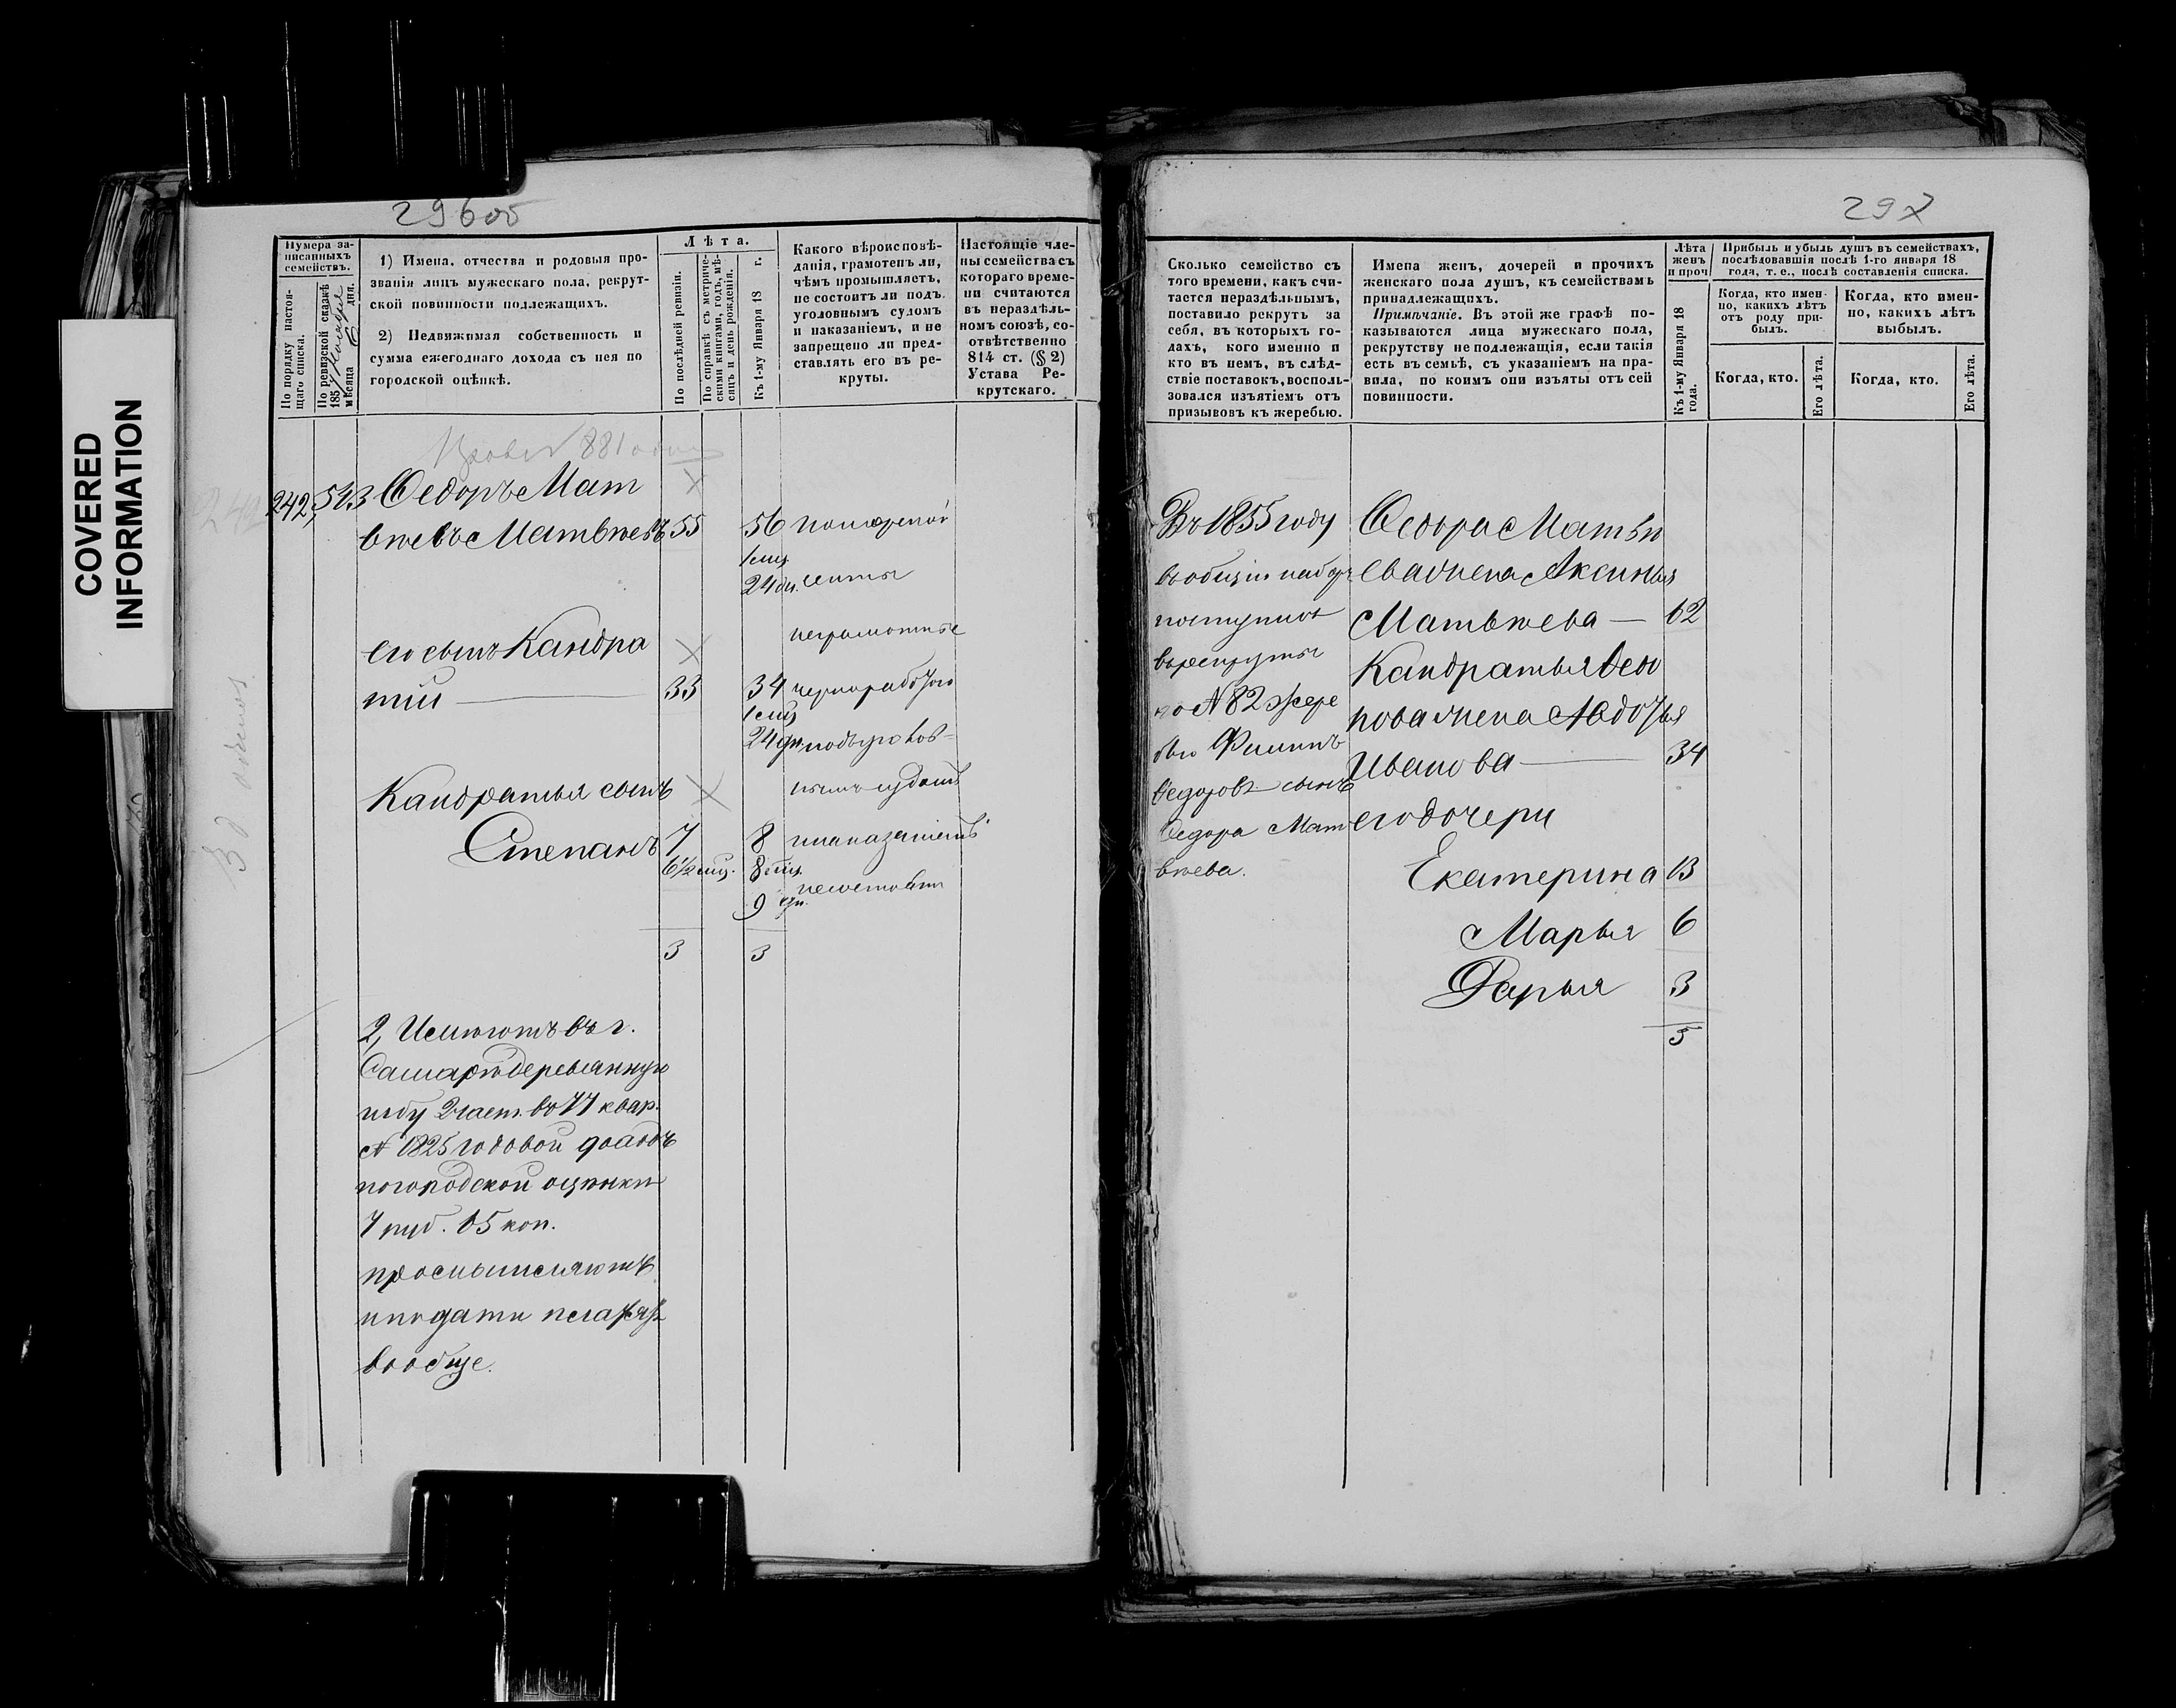 COVERED
INFORMATION
296об
Нумера за-
писанныхъ
семействъ.
По порядку настоя-
щаго списка.
По ревизской сказкѣ
185
мѣсяца дня.
1) Имена, отчества и родовыя про-
званія лицъ мужескаго пола, рекрут-
ской повинности подлежащихъ.
2) Недвижимая собственность и
сумма ежегоднаго дохода съ нея по
городской оцѣнкѣ.
Лѣта.
По послѣдней ревизіи.
По справкѣ съ метриче-
скими книгами, годъ, мѣ-
сяцъ и день рожденія.
Къ 1-му Января 18 г.
Какого вѣроисповѣ-
данія, грамотенъ ли,
чѣмъ промышляетъ,
не состоитъ ли подъ
уголовнымъ судомъ
и наказаніемъ, и не
запрещено ли пред-
ставлять его въ ре-
круты.
Настоящіе чле-
ны семейства съ
котораго време-
ни считаются
въ нераздѣль-
номъ союзѣ, со-
отвѣтственно
814 ст. (§ 2)
Устава Ре-
крутскаго.
242, 513 Федоръ Мат
вѣевъ Матвѣевъ 55 56 поморской
1 мц.
24 дн. секты
его сынъ Кандра
неграмотные
тій — 33 34 чернорабочіе
1 мц
24 дн подъуголов-
Кандратья сынъ
нымъ судомъ
Степанъ 7 8 инаказаніемъ
6½ мц. 8 мц.
9 дн. несостоятъ
3 3
2, Имѣютъ въ г.
Самарѣ деревянную
избу 2 част. въ 77 квар.
№ 1825 годовой доходъ
погородской оцѣнки
7 руб. 15 коп.
промышляютъ
иподати платятъ
вообще.
297
Сколько семейство съ
того времени, какъ счи-
тается нераздѣльнымъ,
поставило рекрутъ за
себя, въ которыхъ го-
дахъ, кого именно и
кто въ немъ, въ слѣд-
ствіе поставокъ, восполь-
зовался изъятіемъ отъ
призывовъ къ жеребью.
Имена женъ, дочерей и прочихъ
женскаго пола душъ, къ семействамъ
принадлежащихъ.
Примѣчаніе. Въ этой же графѣ по-
казываются лица мужескаго пола,
рекрутству не подлежащія, если такія
есть въ семьѣ, съ указаніемъ на пра-
вила, по коимъ они изъяты отъ сей
повинности.
Лѣта
женъ
и проч
Къ 1-му Января 18
года.
Прибыль и убыль душъ въ семействахъ,
послѣдовавшія послѣ 1-го января 18
года, т. е., послѣ составленія списка.
Когда, кто имен-
но, какихъ лѣтъ
отъ роду при-
былъ.
Когда, кто имен-
но, какихъ лѣтъ
выбылъ.
Когда, кто.
Его лѣта.
Когда, кто.
Его лѣта.
Въ 1855 году
вобщій наборъ
поступилъ
върекруты
по № 82 жере
бью Филипъ
Федоровъ сынъ
Федора Мат
вѣева.
Федора Матвѣ
ева жена Аксинья
Матвѣева — 62
Кандратья Федо
рова жена Авдотья
Иванова — 34
его дочери
Екатерина 13
Марья 6
Дарья 3
5